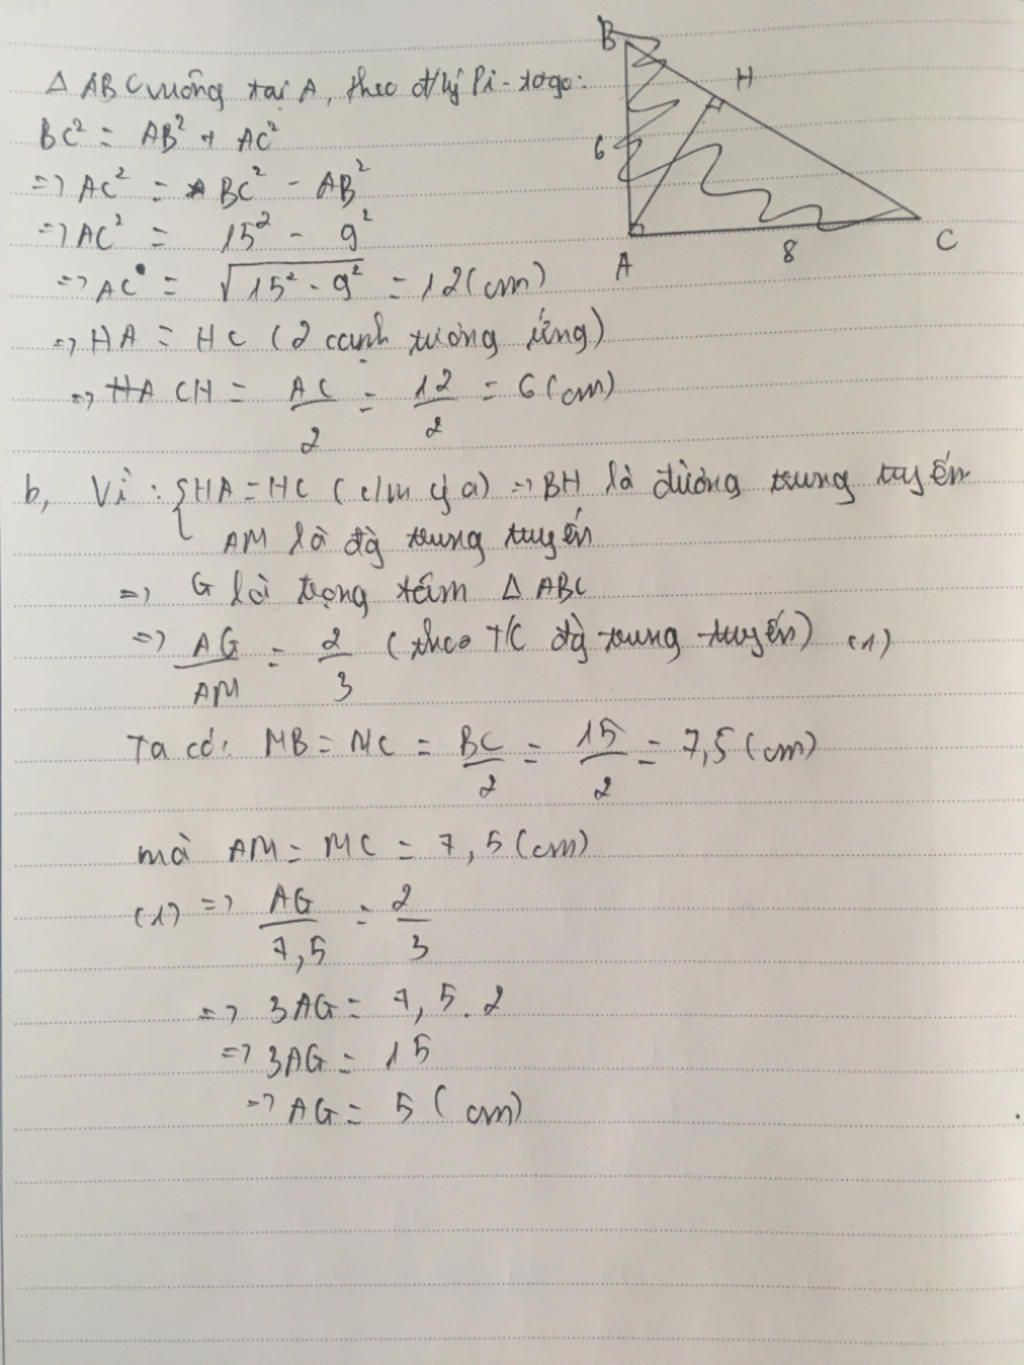 Δ ABC vuông tại A, theo đ/lý Pi-tago:
BC² = AB² + AC²
=> AC² = BC² - AB²
=> AC² = 15² - 9²
=> AC = √15² - 9² = 12 (cm)
=> HA = HC (2 cạnh tương ứng)
=> CH = AC/2 = 12/2 = 6 (cm)
b, Vì : { HA = HC (c/m ý a) => BH là đường trung tuyến
AM là đg trung tuyến
=> G là trọng tâm Δ ABC
=> AG/AM = 2/3 (theo T/C đg trung tuyến) (1)
Ta có: MB = MC = BC/2 = 15/2 = 7,5 (cm)
mà AM = MC = 7,5 (cm)
(1) => AG/7,5 = 2/3
=> 3AG = 7,5.2
=> 3AG = 15
=> AG = 5 (cm)
B
H
6
A
8
C